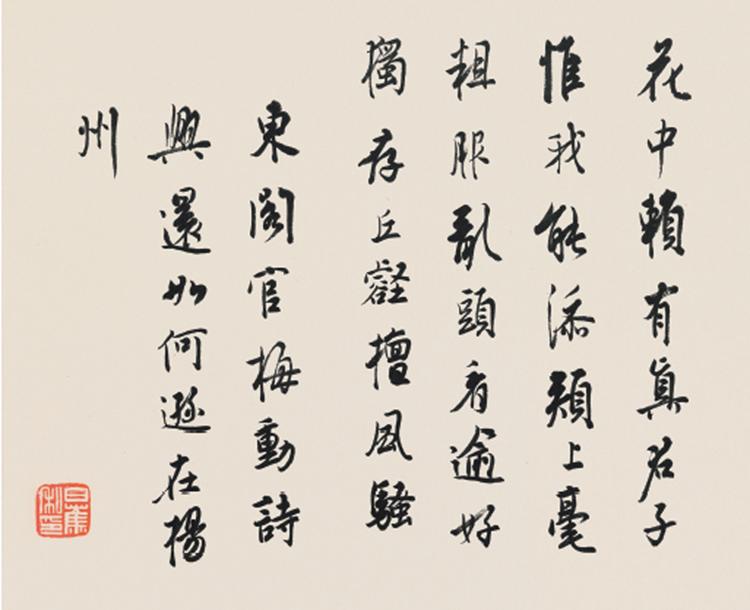 花中賴有眞君子
惟我能添頰上毫
粗服亂頭看逾好
獨存丘壑擅風騷
東閣官梅動詩
興還如何遜在揚
州
白蕉私印